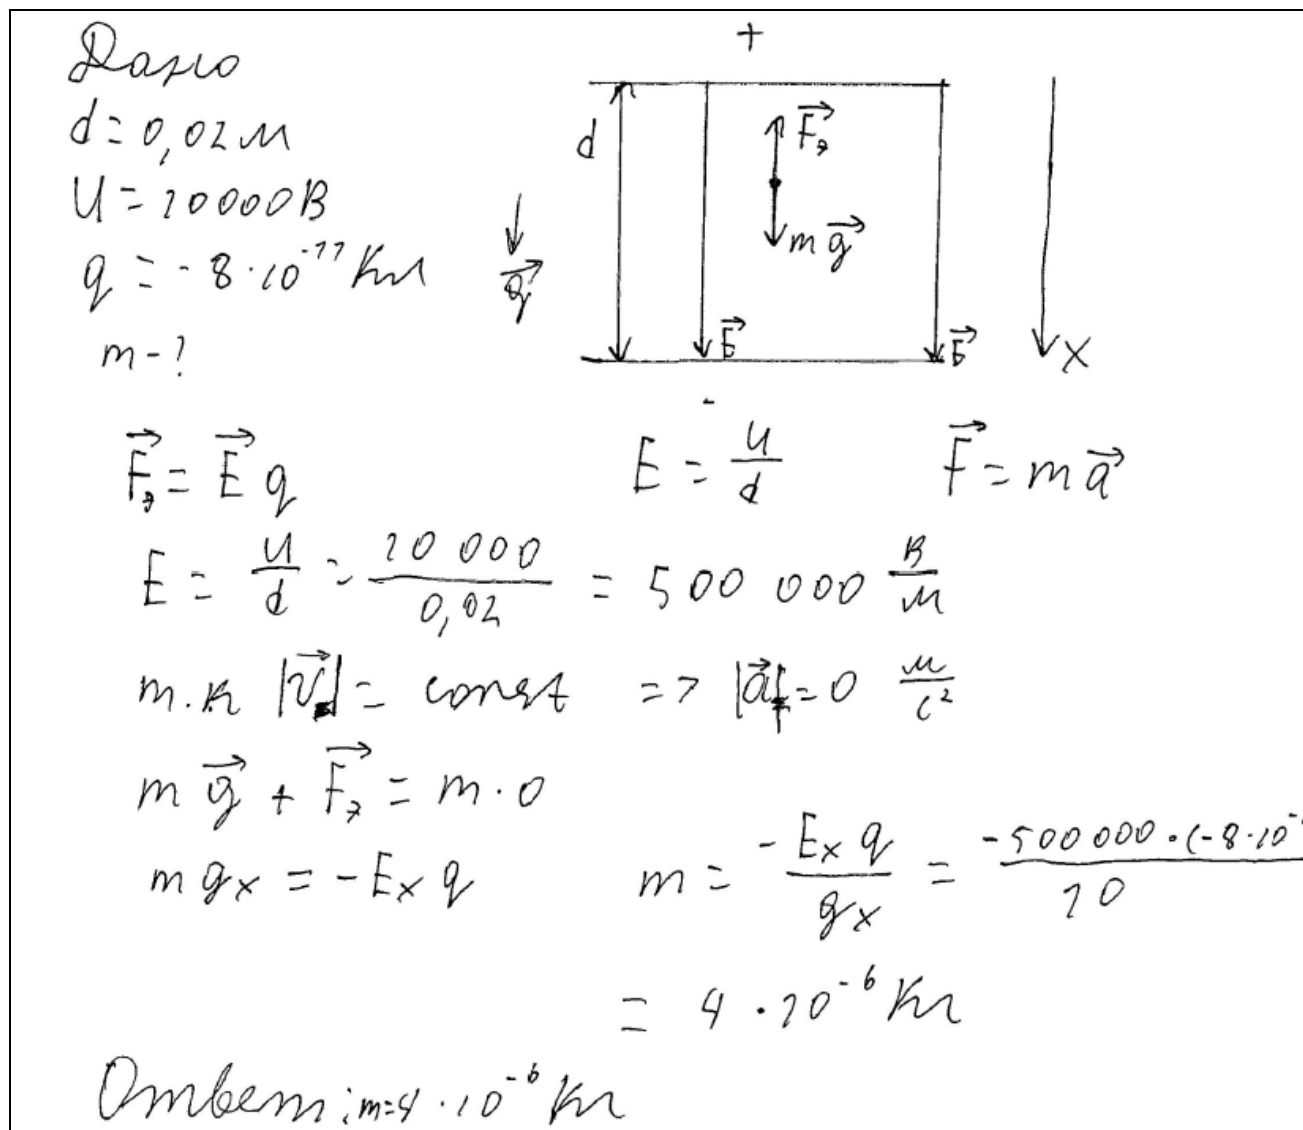 Дано
d = 0,02 м
U = 10000 В
q = -8·10⁻¹¹ Кл
m - ?
+
d
F⃗э
mg⃗
g⃗
E⃗
E⃗
X
-
F⃗э = E⃗ q
E = U/d
F⃗ = ma⃗
E = U/d = 10 000/0,02 = 500 000 В/м
т.к |v⃗| = const => |a⃗| = 0 м/с²
mg⃗ + F⃗э = m·0
mgx = -Ex q
m = -Ex q/gx = -500 000·(-8·10⁻/10
= 4·10⁻⁶ Кл
Ответ: m=4·10⁻⁶ Кл